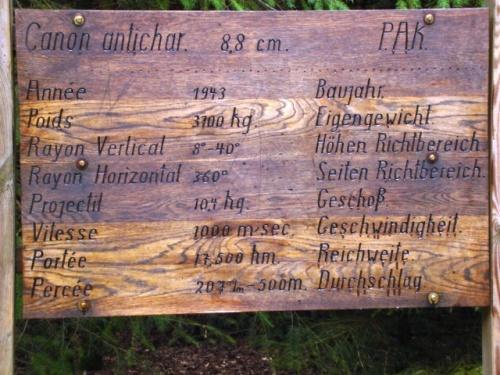 Canon antichar. 8,8 cm. PAK.
Année 1943 Baujahr.
Poids 3700 kg. Eigengewicht
Rayon Vertical 8°-40° Höhen Richtbereich.
Rayon Horizontal 360° Seiten Richtbereich.
Projectil 10,4 kg. Geschoß.
Vitesse 1000 m.sec. Geschwindigheit.
Portée 17,500 km. Reichweite.
Percée 207 m-500m. Durchschlag.